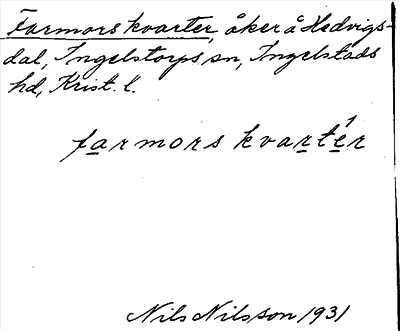 Farmors kvarter, åker å Hedvigs-
dal, Ingelstorps sn, Ingelstads
hd, Krist. l.
farmors kvarte̍r
Nils Nilsson 1931